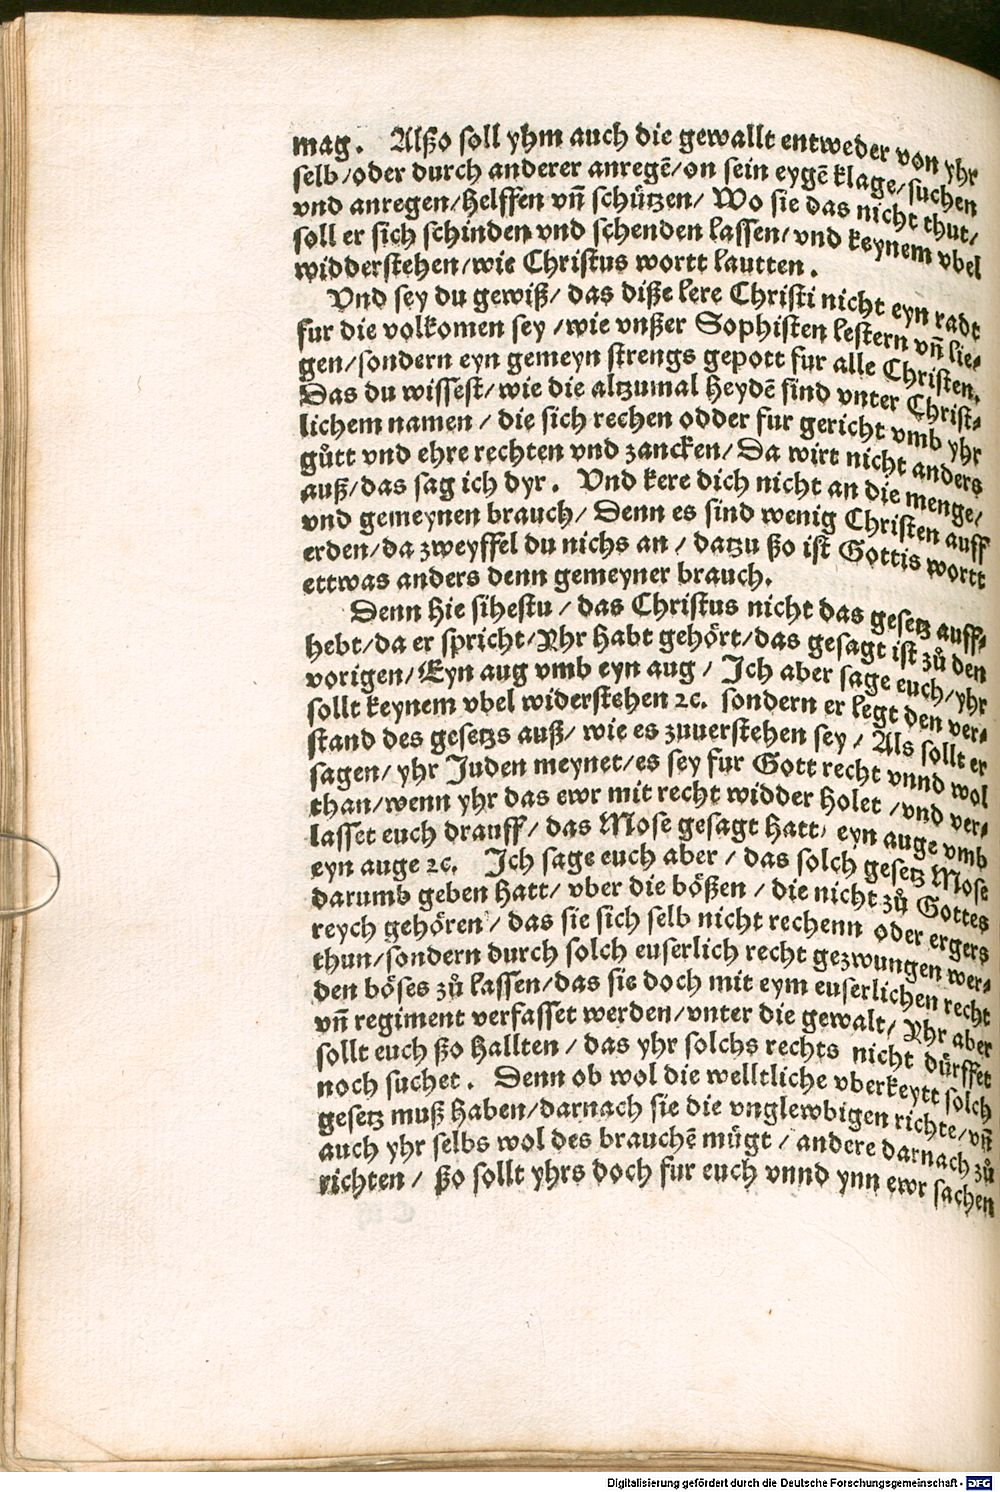 mag. Alßo soll yhm auch die gewallt entweder von yhr
selb/oder durch anderer anregē/on sein eygē klage/suchen
vnd anregen/helffen vñ schützen/ Wo sie das nicht thut/
soll er sich schinden vnd schenden lassen/ vnd keynem vbel
widderstehen/wie Christus wortt lautten.
Vnd sey du gewiß/ das diße lere Christi nicht eyn radt
fur die volkomen sey /wie vnßer Sophisten lestern vñ lie-
gen/sondern eyn gemeyn strengs gepott fur alle Christen,
Das du wissest/wie die altzumal Heydē sind vnter Christ-
lichem namen / die sich rechen odder fur gericht vmb yhr
gůtt vnd ehre rechten vnd zancken/ Da wirt nicht anders
auß/das sag ich dyr. Vnd kere dich nicht an die menge/
vnd gemeynen brauch/ Denn es sind wenig Christen auff
erden/da zweyffel du nichs an / datzu ßo ist Gottis wortt
ettwas anders denn gemeyner brauch.
Denn hie sihestu / das Christus nicht das gesetz auff-
hebt/da er spricht/Yhr habt gehört/das gesagt ist zů den
vorigen/Eyn aug vmb eyn aug / Ich aber sage euch/yhr
sollt keynem vbel widerstehen ꝛc. sondern er legt den ver-
stand des gesetzs auß/ wie es zuuerstehen sey / Als sollt er
sagen/ yhr Juden meynet/es sey fur Gott recht vnnd wol
than/wenn yhr das ewr mit recht widder holet /vnd ver-
lasset euch drauff/ das Mose gesagt hatt/ eyn auge vmb
eyn auge ꝛc. Ich sage euch aber / das solch gesetz Mose
darumb geben hatt/ vber die bößen / die nicht zů Gottes
reych gehören / das sie sich selb nicht rechenn oder ergers
thun/sondern durch solch euserlich recht gezwungen wer-
den böses zů lassen/das sie doch mit eym euserlichen recht
vñ regiment verfasset werden/vnter die gewalt/ Yhr aber
sollt euch ßo hallten / das yhr solchs rechts nicht dürffet
noch suchet. Denn ob wol die welltliche vberkeytt solch
gesetz muß haben/darnach sie die vnglewbigen richte/vñ
auch yhr selbs wol des brauchē mügt / andere darnach zů
richten / ßo sollt yhrs doch fur euch vnnd ynn ewr sachen
Digitalisierung gefördert durch die Deutsche Forschungsgemeinschaft - DFG